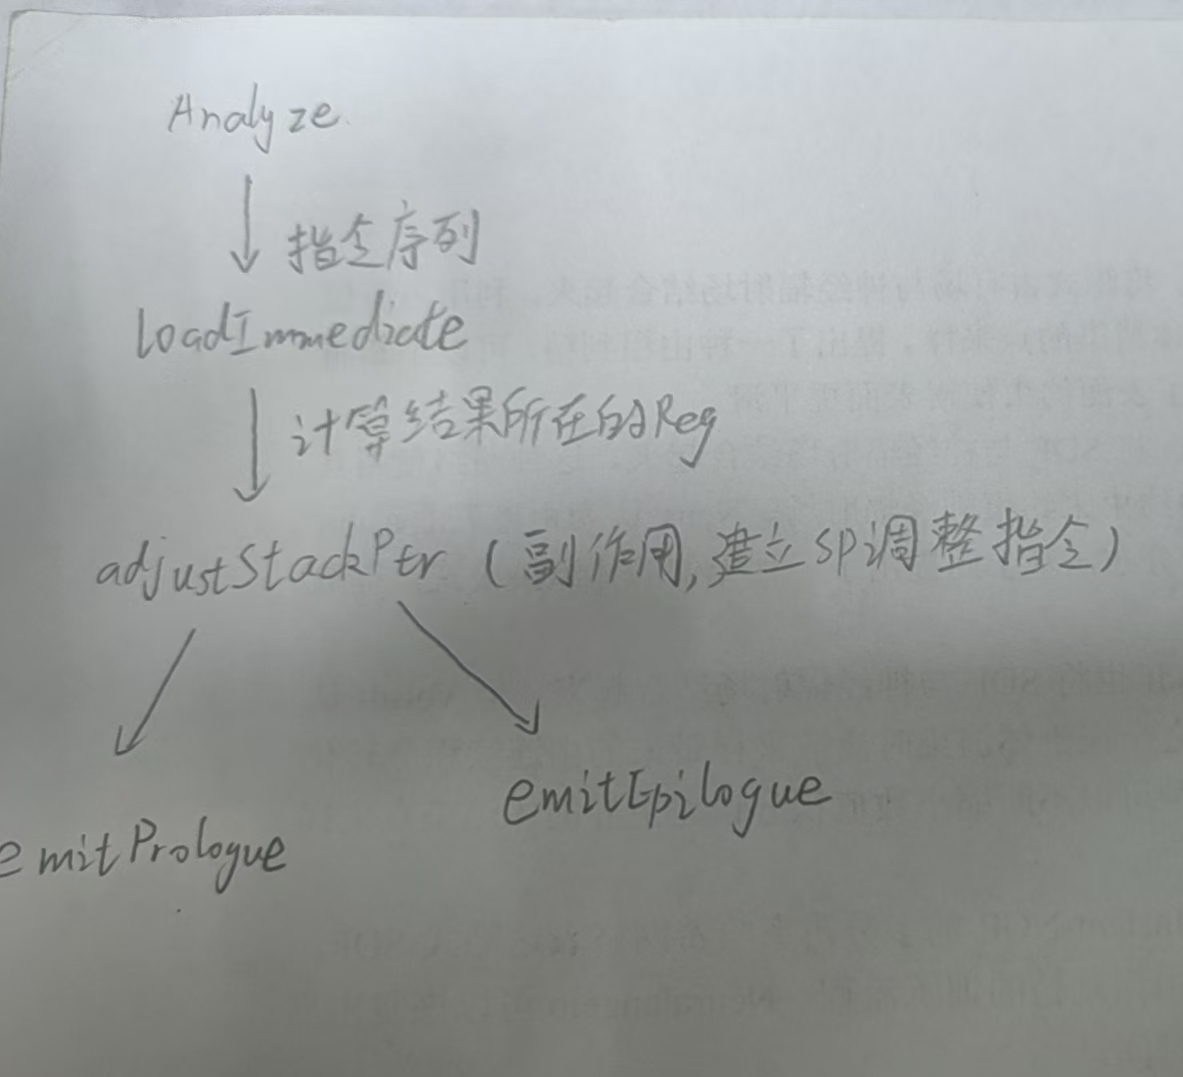 Analyze.
指令序列
loadImmediate
计算结果所在的Reg
adjustStackPtr (副作用,建立SP调整指令)
emitEpilogue
emitPrologue